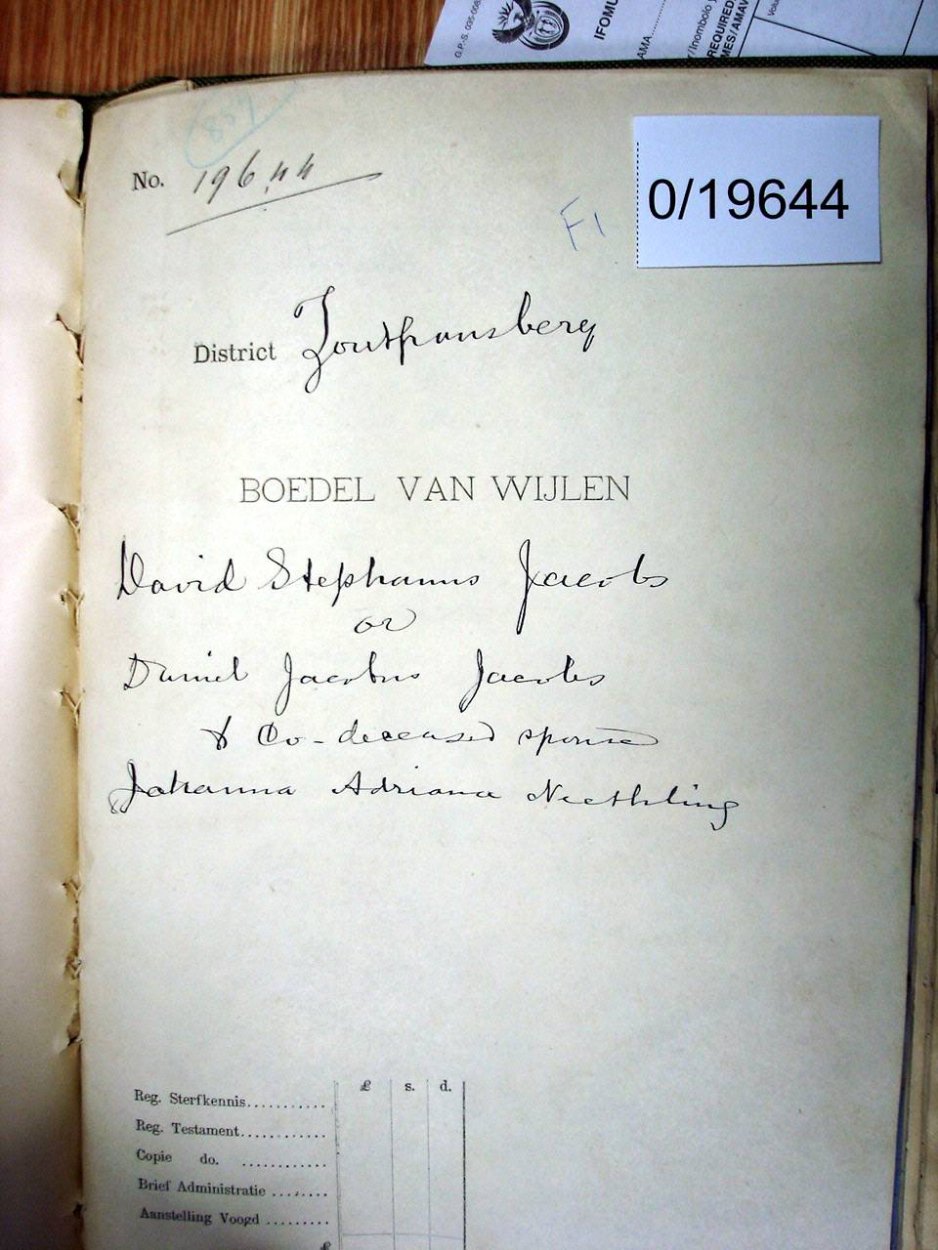 G.P.-S. 035-005
IFOMU
AMA
REQUIRED
MES/AMAV
458
No. 19644
0/19644
F1
District Zoutpansberg
BOEDEL VAN WIJLEN
David Stephanus Jacobs
or
Daniel Jacobus Jacobs
& Co-deceased spouse
Johanna Adriana Neethling
£ s. d.
Reg. Sterfkennis............
Reg. Testament.............
Copie do. ............
Brief Administratie ........
Aanstelling Voogd .........
£